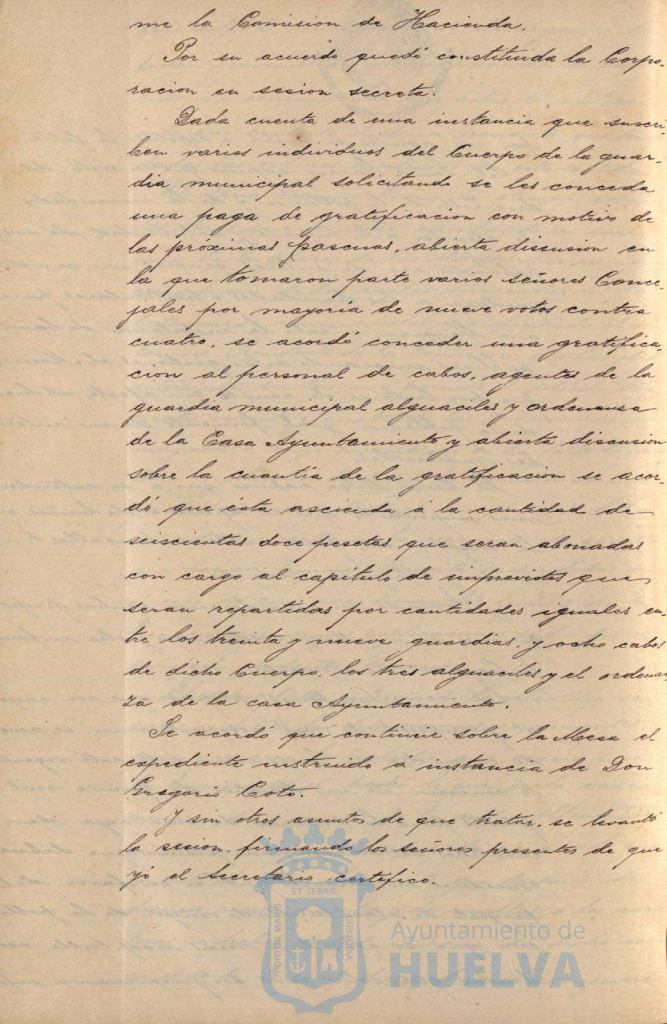 me la Comision de Hacienda.
Por su acuerdo quedó constituida la Corpo-
racion en sesion secreta.
Dada cuenta de una instancia que suscri-
ben varios individuos del Cuerpo de la guar-
dia municipal solicitando se les conceda
una paga de gratificacion con motivo de
las próximas pascuas, abierta discusion en
la que tomaron parte varios señores Conce-
jales por mayoria de nueve votos contra
cuatro, se acordó conceder una gratifica-
cion al personal de cabos, agentes de la
guardia municipal alguaciles y ordenanza
de la Casa Ayuntamiento y abierta discusion
sobre la cuantia de la gratificacion se acor-
dó que ésta ascienda á la cantidad de
seiscientas doce pesetas que seran abonadas
con cargo al capitulo de imprevistos que
seran repartidas por cantidades iguales en-
tre los treinta y nueve guardias, y ocho cabos
de dicho Cuerpo, los tres alguaciles y el ordenan-
za de la casa Ayuntamiento.
Se acordó que continúe sobre la Mesa el
expediente instruido á instancia de Don
Gregorio Coto.
Y sin otros asuntos de que tratar, se levantó
la sesion, firmando los señores presentes de que
yó el Secretario certifico.
PORTUS MARIS ET TERRAE CUSTODIA
Ayuntamiento de
HUELVA